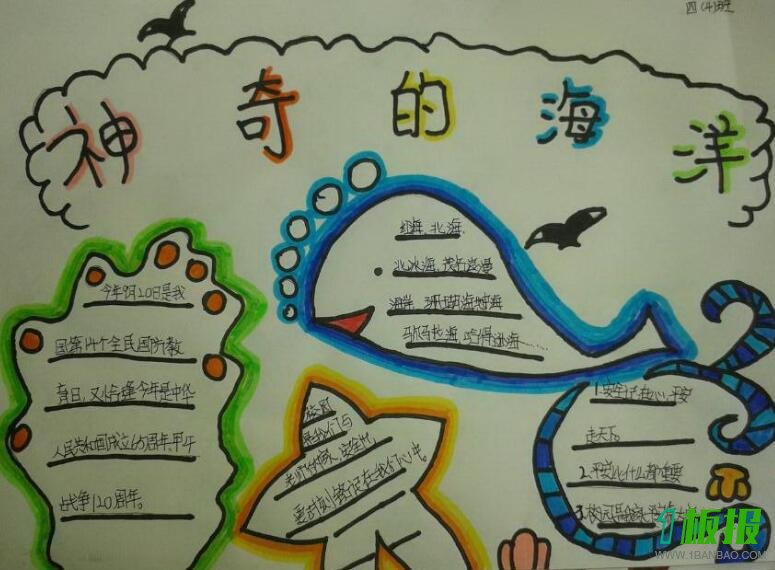 四(4)班
神奇的海洋
今年9月20日是我
国第14个全民国防教
育日,又恰逢今年是中华
人民共和国成立65周年,甲午
战争120周年。
红海、北海、
北冰海、
海岸、珊瑚海
马尔马拉海
校园
是我们与
老师的家,安全
要时刻铭记在我们心中。
1.安全记在心,平安
走天下。
2.平安比什么都重要
3.校园是我家,平安
1板报
WWW.1BANBAO.COM